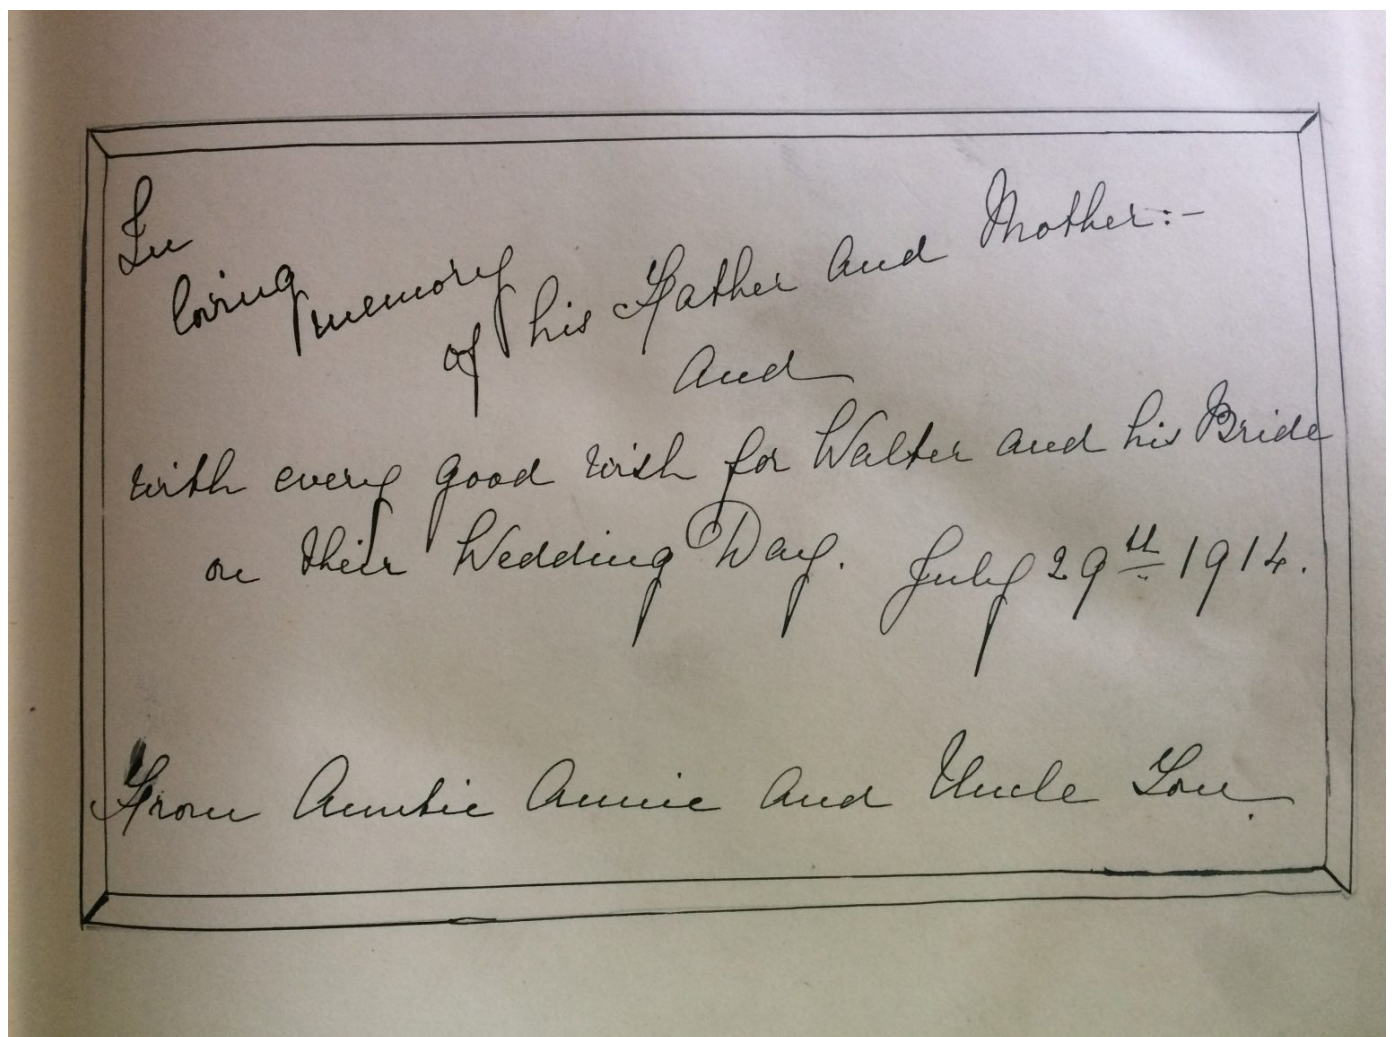 In
loving memory
of his Father and Mother:-
and
with every good wish for Walter and his Bride
on their Wedding Day. July 29th 1914.
From Auntie Annie and Uncle Lou.